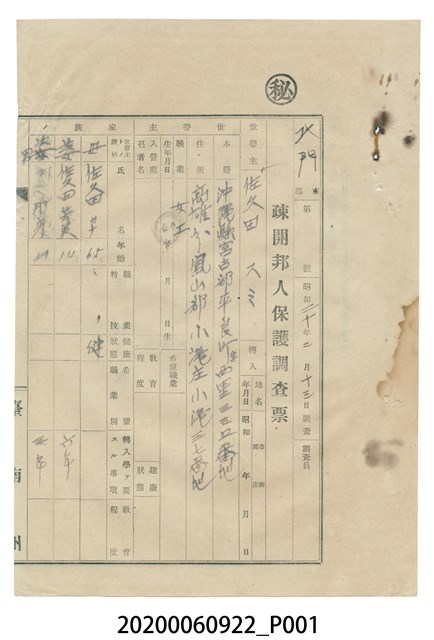 ㊙
北門
郡
疎開邦人保護調査票
第 號 昭和二十年二月十三日調査 調査員
世帶主 佐久田スミ 轉入 地名 市郡 街庄
年月日 昭和 年 月 日
世帶主
本籍 沖繩縣宮古郡平良町字西里三三五番地
住所 高雄州鳳山郡小港庄小港三七番地
職業 女工 希望職業
生年月日 年 月 日生
入營應召者名 教育程度 健康狀態
家族
世帶主トノ續柄 氏名 年齡 職業 特技 健康狀態 希望職業別 轉入學ヲ要スル事項 教育程度
母 佐久田 65 健
佐久田 14 六年
19
臺南州
20200060922_P001